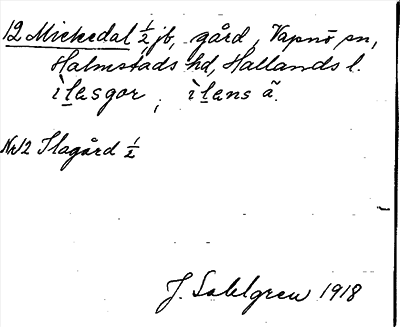 12 Mickedal ½ jb, gård, Vapnö sn,
Halmstads hd, Hallands l.
ìlesgor, ìlens ã.
Nr 12 Ilagård ½
J. Sahlgren 1918